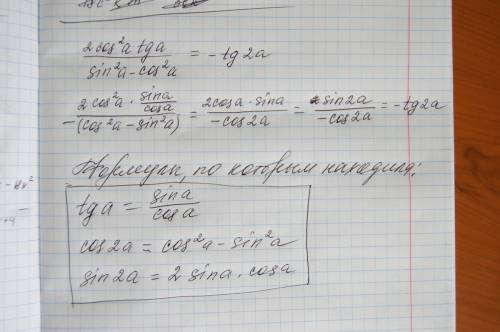 2cos²a tga / sin²a - cos²a = - tg2a
- 2cos²a · sina/cosa / (cos²a - sin²a) = 2cosa · sina / -cos2a = sin2a / -cos2a = - tg2a
Формулы, по которым находила:
tga = sina / cosa
cos2a = cos²a - sin²a
sin2a = 2 sina · cosa